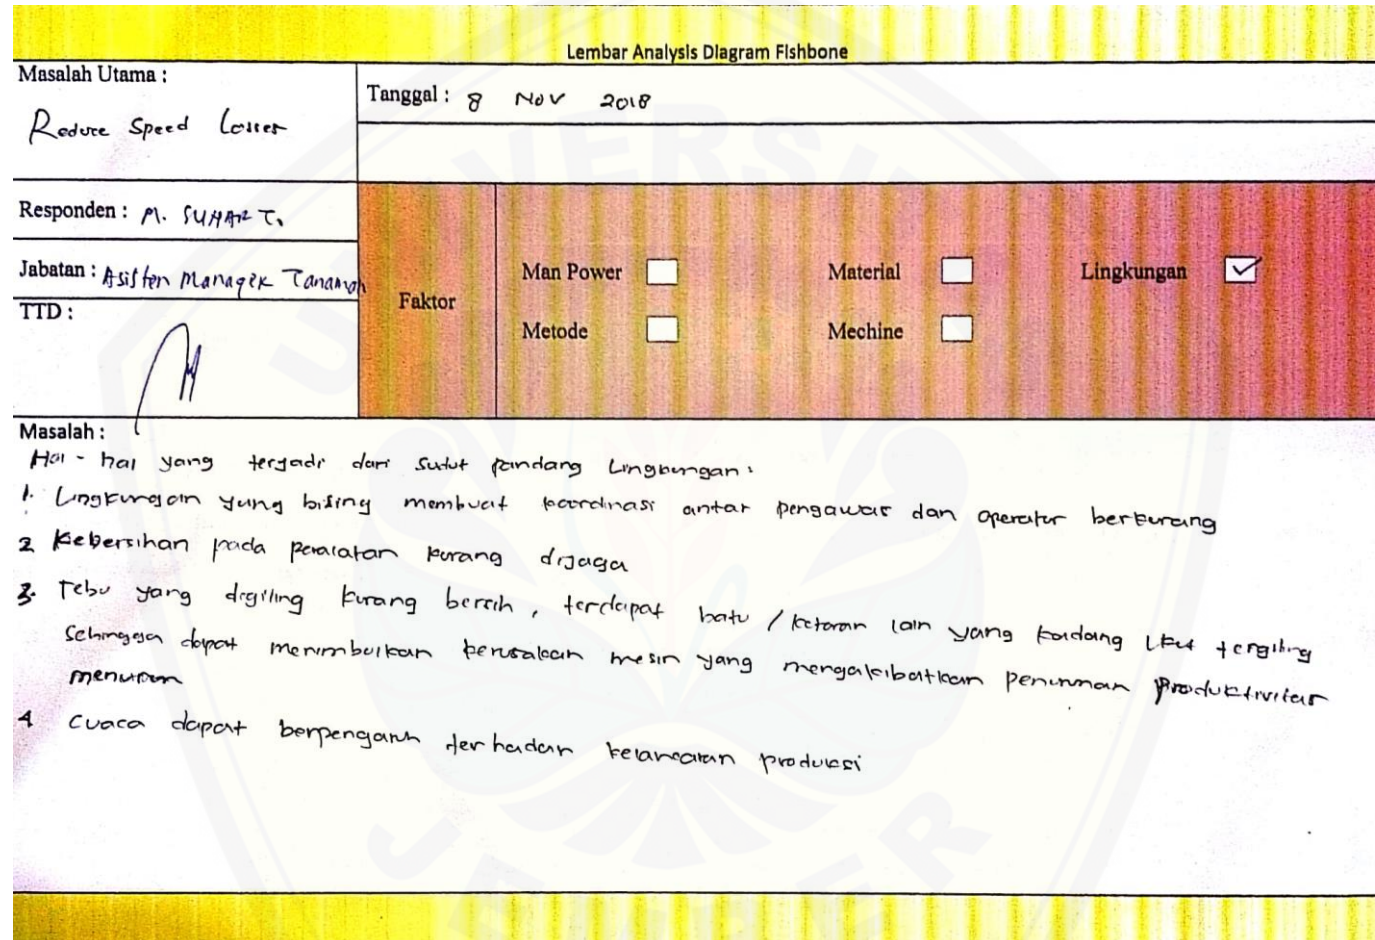 Lembar Analysis Diagram Fishbone
Masalah Utama :
Reduce Speed Losses
Tanggal : 8 Nov 2018
Responden : M. SUHAR T.
Jabatan : Asisten Manager Tanaman
TTD :
Faktor
Man Power
Material
Lingkungan
Metode
Mechine
Masalah :
Hal - hal yang terjadi dari sudut pandang Lingkungan :
1. Lingkungan yang bising membuat koordinasi antar pengawas dan operator berkurang
2 Kebersihan pada peralatan kurang dijaga
3. Tebu yang digiling kurang bersih, terdapat batu / kotoran lain yang kadang ikut tergiling
Sehingga dapat menimbulkan kerusakan mesin yang mengakibatkan penurunan produktivitas
menurun
4 Cuaca dapat berpengaruh terhadap kelancaran produksi
UNIVERSITAS
JEMBER